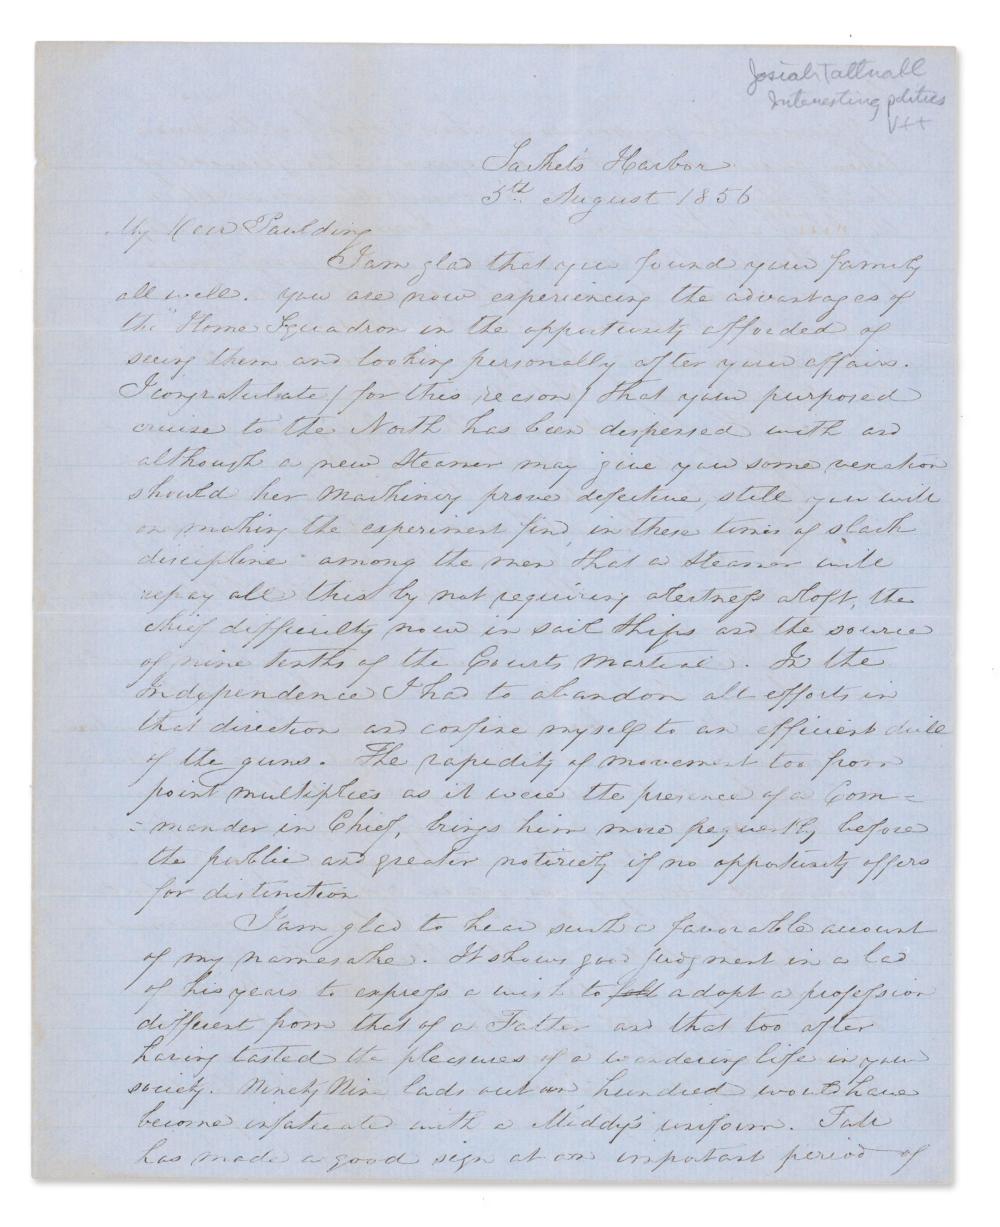 Josiah Tattnall
Interesting politics
V++
Sackets Harbor
5th. August 1856
My Dear Paulding
I am glad that you found your family
all well. You are now experiencing the advantages of
the "Home Squadron in the opportunity afforded of
seeing them and looking personally after your affairs.
I congratulate (for this reason) that your purposed
cruise to the North has been dispensed with and
although a new Steamer may give you some vexation
should her Machinery prove defective, still you will
on making the experiment find, in these times of slack
discipline among the men that a Steamer will
repay all this by not requiring alertness aloft, the
chief difficulty now in sail ships and the source
of nine tenths of the Courts Martial. In the
Independence I had to abandon all efforts in
that direction and confine myself to an efficient drill
of the guns. The rapidity of movement too from
point multiplies as it were the presence of a Com=
=mander in Chief, brings him more frequently before
the public and greater notoriety if no opportunity offers
for distinction
I am glad to hear such a favorable account
of my namesake. It shows good judgment in a lad
of his years to express a wish to adopt a profession
different from that of a Father and that too after
having tasted the pleasures of a wandering life in your
society. Ninety Nine lads out an hundred would have
become infatuated with a Middy's uniform. Fate
has made a good sign at an important period of